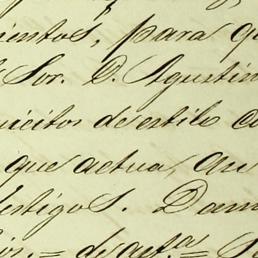 ientos, para q
Sor. D. Agustin
uicitos de estilo co
que actua, au
estigos. Dam